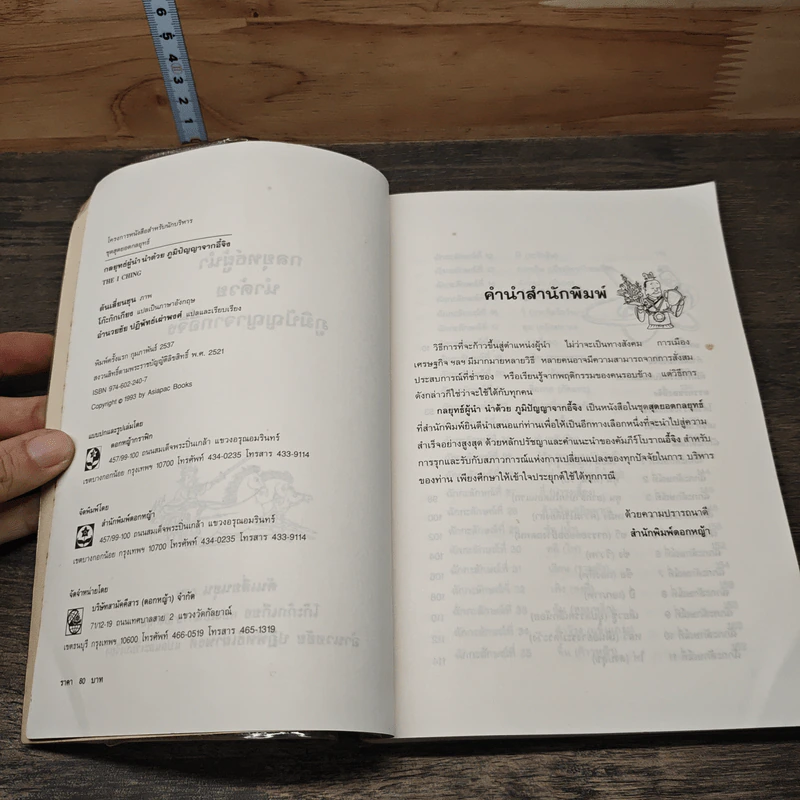 6
5
4
3
2
1
โครงการหนังสือสำหรับนักบริหาร
ชุดสุดยอดกลยุทธ์
กลยุทธ์ผู้นำ นำด้วย ภูมิปัญญาจากอี้จิง
THE I CHING
ตันเสี่ยนชุน ภาพ
โก๊ะกักเกียง แปลเป็นภาษาอังกฤษ
อำนวยชัย ปฏิพัทธ์เผ่าพงศ์ แปลและเรียบเรียง
พิมพ์ครั้งแรก กุมภาพันธ์ 2537
สงวนลิขสิทธิ์ตามพระราชบัญญัติลิขสิทธิ์ พ.ศ. 2521
ISBN 974-602-240-7
Copyright © 1993 by Asiapac Books
แบบปกและรูปเล่มโดย
ดอกหญ้ากราฟิก
457/99-100 ถนนสมเด็จพระปิ่นเกล้า แขวงอรุณอมรินทร์
เขตบางกอกน้อย กรุงเทพฯ 10700 โทรศัพท์ 434-0235 โทรสาร 433-9114
จัดพิมพ์โดย
สำนักพิมพ์ดอกหญ้า
457/99-100 ถนนสมเด็จพระปิ่นเกล้า แขวงอรุณอมรินทร์
เขตบางกอกน้อย กรุงเทพฯ 10700 โทรศัพท์ 434-0235 โทรสาร 433-9114
จัดจำหน่ายโดย
บริษัทสามัคคีสาร (ดอกหญ้า) จำกัด
71/12-19 ถนนเทศบาลสาย 2 แขวงวัดกัลยาณ์
เขตธนบุรี กรุงเทพฯ 10600 โทรศัพท์ 466-0519 โทรสาร 465-1319
ราคา 80 บาท
คำนำสำนักพิมพ์
วิธีการที่จะก้าวขึ้นสู่ตำแหน่งผู้นำ ไม่ว่าจะเป็นทางสังคม การเมือง
เศรษฐกิจ ฯลฯ มีมากมายหลายวิธี หลายคนอาจมีความสามารถจากการสั่งสม
ประสบการณ์ที่ช่ำชอง หรือเรียนรู้จากพฤติกรรมของคนรอบข้าง แต่วิธีการ
ดังกล่าวก็ใช่ว่าจะใช้ได้กับทุกคน
กลยุทธ์ผู้นำ นำด้วย ภูมิปัญญาจากอี้จิง เป็นหนังสือในชุดสุดยอดกลยุทธ์
ที่สำนักพิมพ์ยินดีนำเสนอแก่ท่านเพื่อให้เป็นอีกทางเลือกหนึ่งที่จะนำไปสู่ความ
สำเร็จอย่างสูงสุด ด้วยหลักปรัชญาและคำแนะนำของคัมภีร์โบราณอี้จิง สำหรับ
การรุกและรับกับสภาวการณ์แห่งการเปลี่ยนแปลงของทุกปัจจัยในการ บริหาร
ของท่าน เพียงศึกษาให้เข้าใจประยุกต์ใช้ได้ทุกกรณี
ด้วยความปรารถนาดี
สำนักพิมพ์ดอกหญ้า